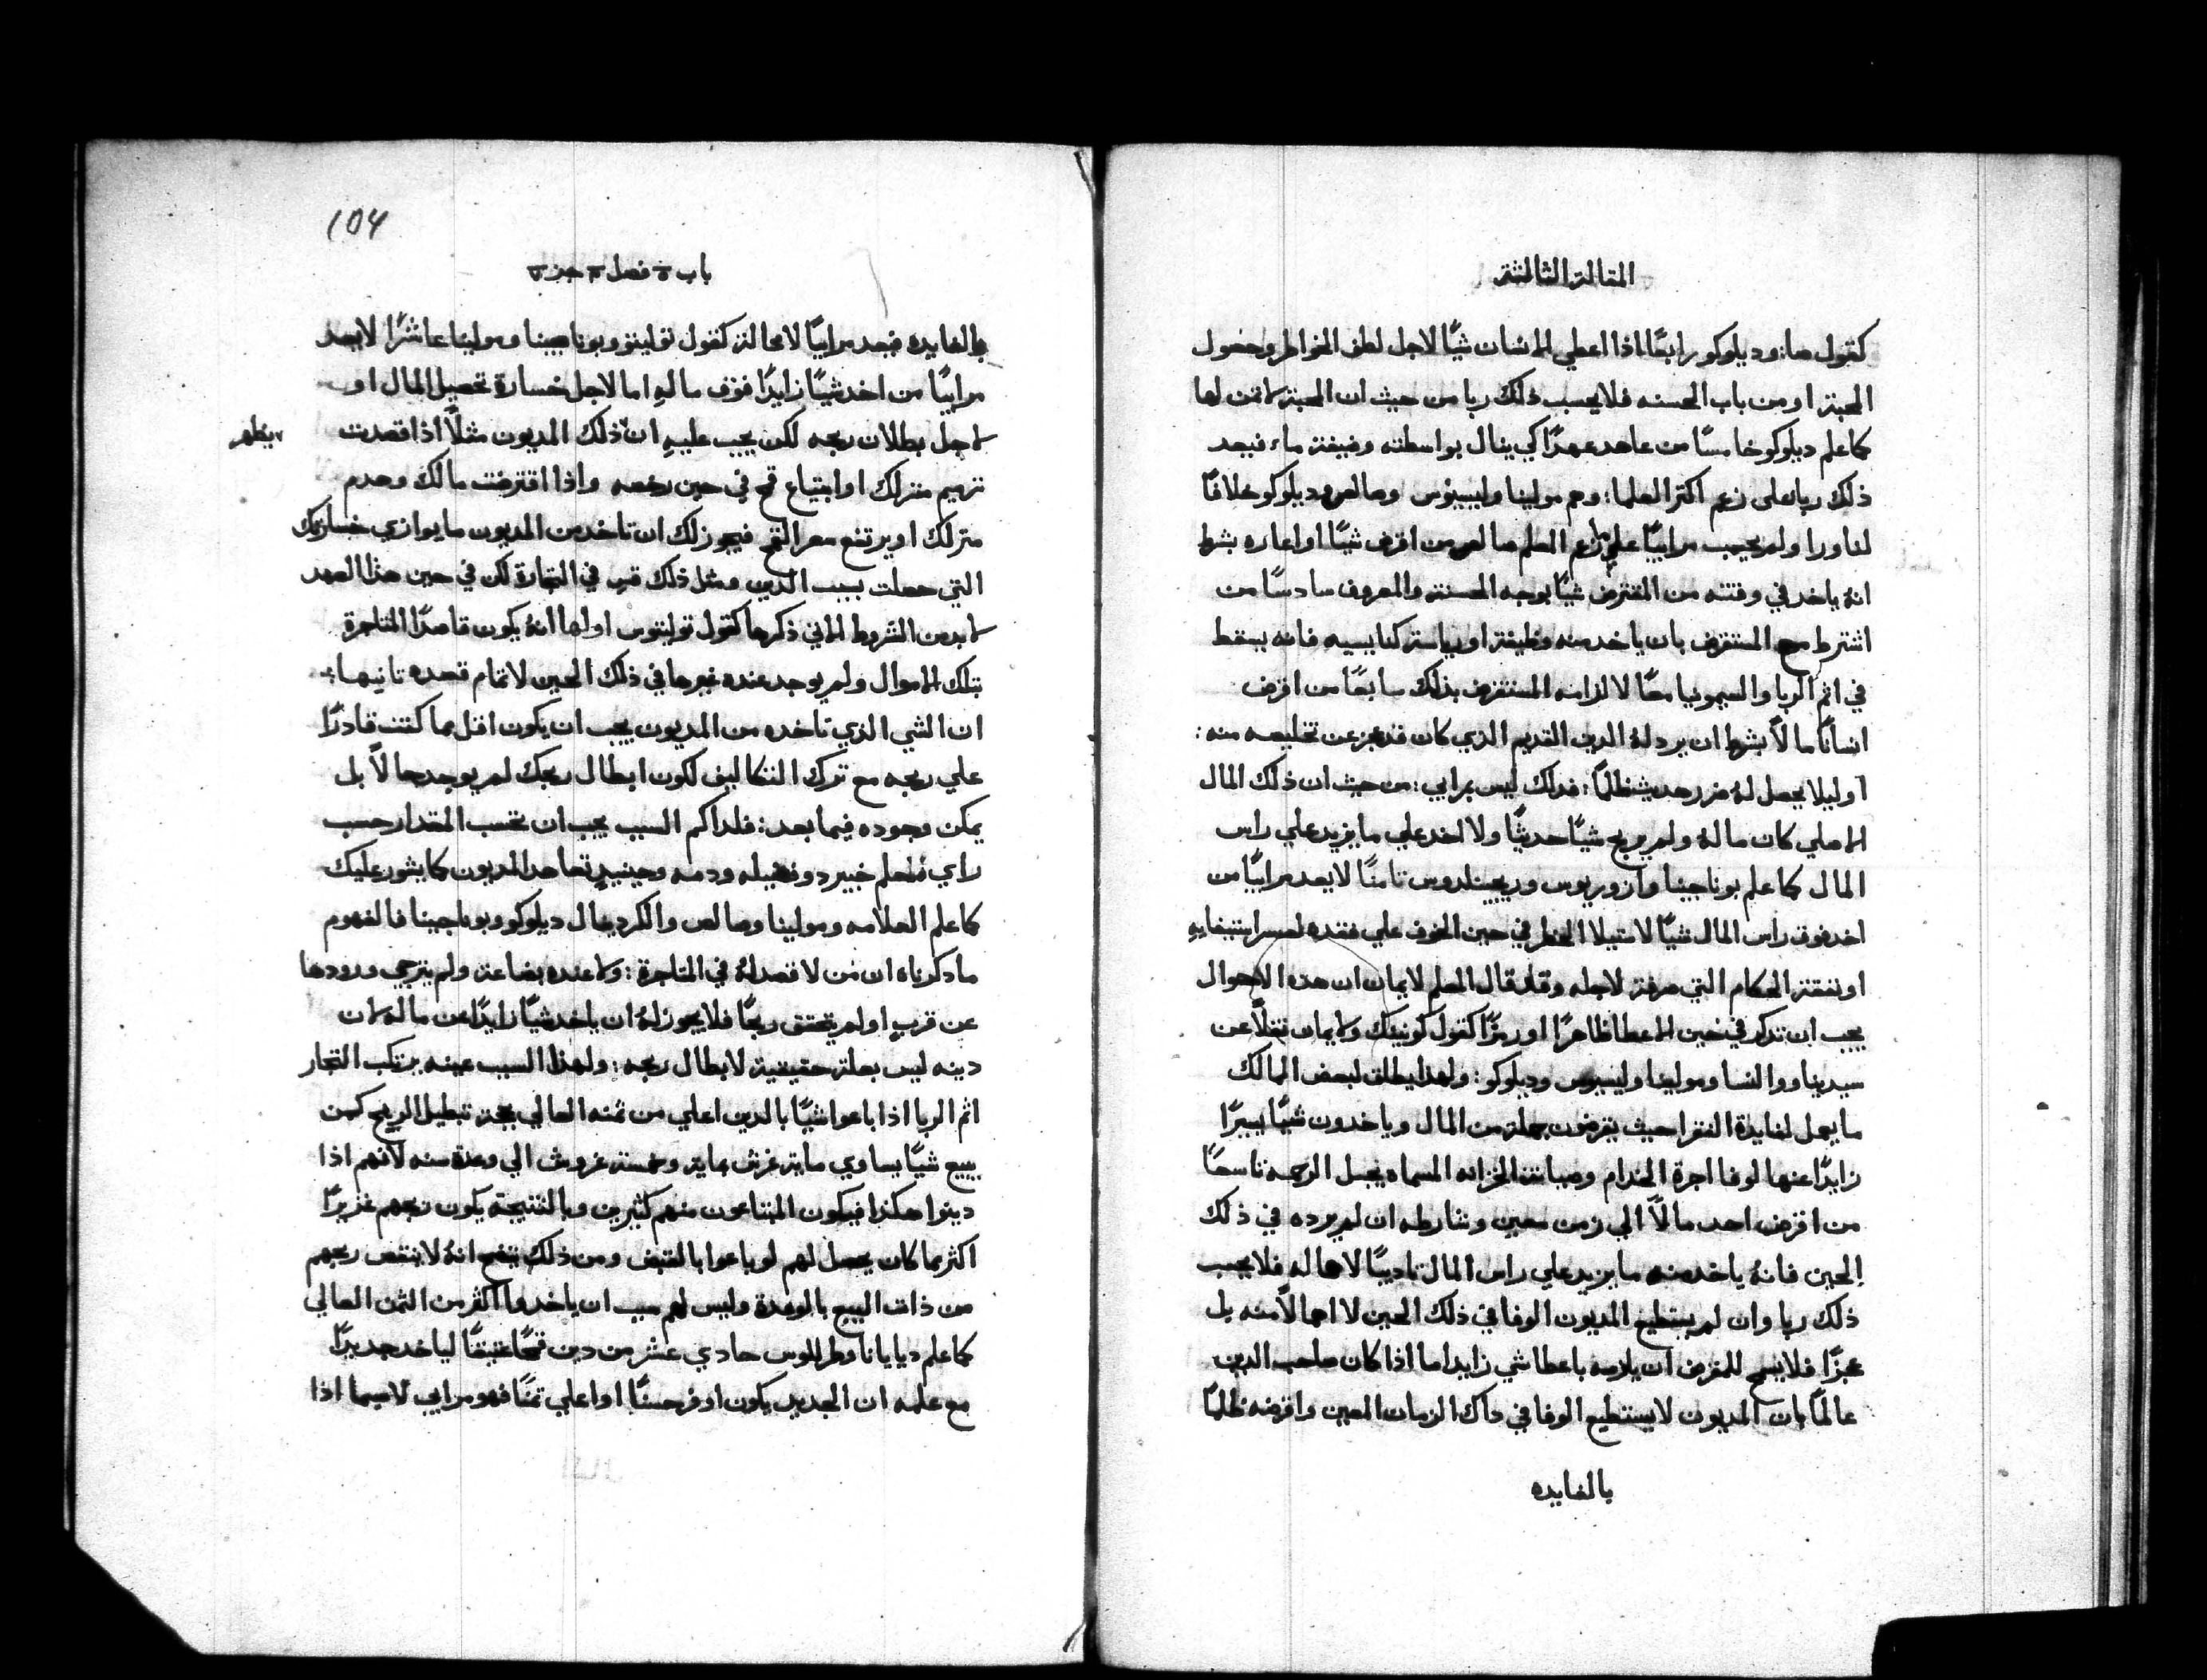 المقالة الثالثة
كقول صا: وديلوكو رابعًا اذا اعطي الانسان شيًا لاجل لطف الخواطر وحصول
المحبة او من باب الحسنه فلا يحسب ذلك ربا من حيث ان المحبة لا تمن لها
كما علم ديلوكو خامسًا من عاهد عهدًا كي ينال بواسطته وضيفة ماء فيعد
ذلك ربا على زعم اكتر العلما: وهم مولينا وليسيوس وصالص وديلوكو خلافًا
لناورا ولم يحسب مرابيًا علي زعم المعلم صالص من اقرض شيًا او اعاره بشرط
انهُ ياخد في وقتته من المقترض شيًا بوجه الحسنة والمعروف سادسًا من
اشترط مع المستقرض بان ياخد منه وظيفة او رياسة كنايسيه فانه يسقط
في اثم الربا والسيمونيا معًا لالزامه المستقرض بذلك سابعًا من اقرض
انسانًا مالًا بشرط ان يرد لهُ الدين القديم الذي كان قد عجز عن تخليصه منه:
اوليلا يحصل لهُ ضرر حديث ظلمًا: فدلك ليس برابي: من حيث ان ذلك المال
الاصلي كان ماله ولم يربح شيًا حديثًا ولا اخد علي ما يزيد علي راس
المال كما علم بوناجينا وازوريوس وريجينلدوس تامنًا لا يعد مرابيًا من
اخد فوق راس المال شيًا لاستيلا الخطر في حين الخوف علي فقده لعسر استيفايهِ
او نفقة الحكام التي صرفة لاجله وقد قال المعلم لايمان ان هده الاحوال
يجب ان تدكر في حين الاعطا ظاهرًا او رمزًا كقول كونينك ولايمان نقلًا عن
سيدينا ووالنسا ومولينا وليسيوس وديلوكو: ولهدا يطلق لبعض الممالك
ما يعمل لفايدة الفقرا حيث يقرضون جملة من المال وياخدون شيًا يسيرًا
زايدًا عنها لوفا اجرة الخدام وصيانة الخزانه المسماه بجبل الرحمه تاسعًا
من اقرض احد مالًا الي زمن معين وشارطه ان لم يرده في ذلك
الحين فانهُ ياخد منه ما يزيد علي راس المال تاديبًا لاهماله فلا يحسب
ذلك ربا وان لم يستطيع المديون الوفا في ذلك الحين لا اهمالًا منه بل
عجزًا فلا يسمح للمقرض ان يلزمه باعطا شي زايد اما اذا كان صاحب الدين
عالمًا بان المديون لا يستطيع الوفا في داك الزمان المعين واقرضه ظلمًا
بالفايده
104
باب ة فصل جزء
بالفايده فيعد مرابيًا لا محالة كقول توليتو وبوناجينا ومولينا عاشرًا لا يعد
مرابيًا من اخد شيًا زايدًا فوق مالهِ اما لاجل خسارة تحصيل المال او
لاجل بطلان ربحه لكن يجب عليهِ ان ذلك المديون مثلًا اذا قصدت
يظهر
ترميم منزلك او ابتياع قمح في حين رخصه واذا اقترضت مالك وهدم
منزلك او يرتفع سعر القمح فيجوز لك ان تاخد من المديون ما يوازي خسارتك
التي حصلت بسبب الدين ومثل ذلك قس في التجارة لكن في حين هذا العهد
لا بد من الشروط الاتي ذكرها كقول توليتوس اولها انهُ يكون قاصدًا المتاجرة
بتلك الاموال ولم يوجد عنده غيرها في ذلك الحين لاتمام قصده تانيها:
ان الشي الذي تاخده من المديون يجب ان يكون اقل مما كنت قادرًا
علي ربحه مع ترك التكاليف لكون ابطال ربحك لم يوجد حالًا بل
يمكن وجوده فيما بعد: فلداكم السبب يجب ان تحسب المقدار حسب
راي مُعلم خبير دو فضيله ودمه وحينيدٍ تعاهد المديون كما يشور عليك
كما علم العلامه ومولينا وصالص والكردينال ديلوكو وبوناجينا فالمفهوم
مادكرناه ان من لا قصد لهُ في المتاجرة: ولا عنده بضاعة ولم يترجي ورودها
عن قربٍ او لم يتحقق ربحًا فلا يجوز لهُ ان ياخد شيًا زايدًا عن ماله لان
دينه ليس بعلة حقيقية لابطال ربحه: ولهذا السبب عينه يرتكب التجار
اثم الربا اذا باعوا شيًا بالدين اعلي من ثمنه العالي بحجة تبطيل الربح كمن
يبيع شيًا يساوي ماية غرش بماية وخمسة غروش الي وعدة سنه لانهم اذا
دينوا هكذا فيكون المبتاعون منهم كثيرين وبالنتيجة يكون ربحهم غزيرًا
اكثر مما كان يحصل لهم لو باعوا بالقبض ومن ذلك يتضح انهُ لا ينقص ربحهم
من ذات البيع بالوعدة وليس لهم سبب ان ياخدوا اكثر من الثمن العالي
كما علم ديايانا وطرللوس حادي عشر من دين قمحًا عتيقًا لياخد جديدًا
مع علمه ان الجديد يكون اوفر حسنًا او اعلي تمنًا فهو مرابي لاسيما اذا